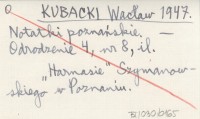 O KUBACKI Wacław 1947.
Notatki poznańskie. —
Odrodzenie 4, nr 8, il.
„Harnasie" Szymanow-
skiego w Poznaniu.